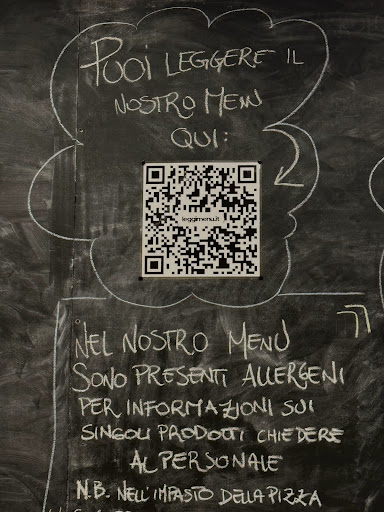 PUOI LEGGERE IL
NOSTRO MENU
QUI:
leggimenu.it
NEL NOSTRO MENU
SONO PRESENTI ALLERGENI
PER INFORMAZIONI SUI
SINGOLI PRODOTTI CHIEDERE
AL PERSONALE
N.B. NELL'IMPASTO DELLA PIZZA